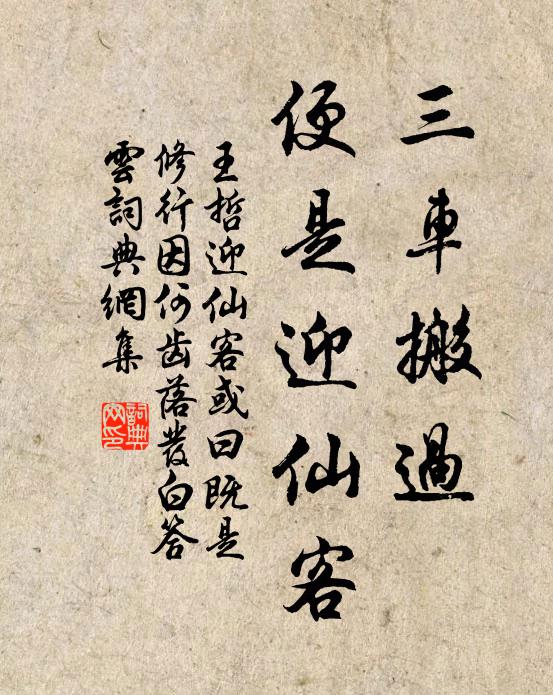 三車搬過
便是迎仙客
王哲迎仙客或曰既是
修行因何齿落發白答
雲詞典網集
詞典
网印